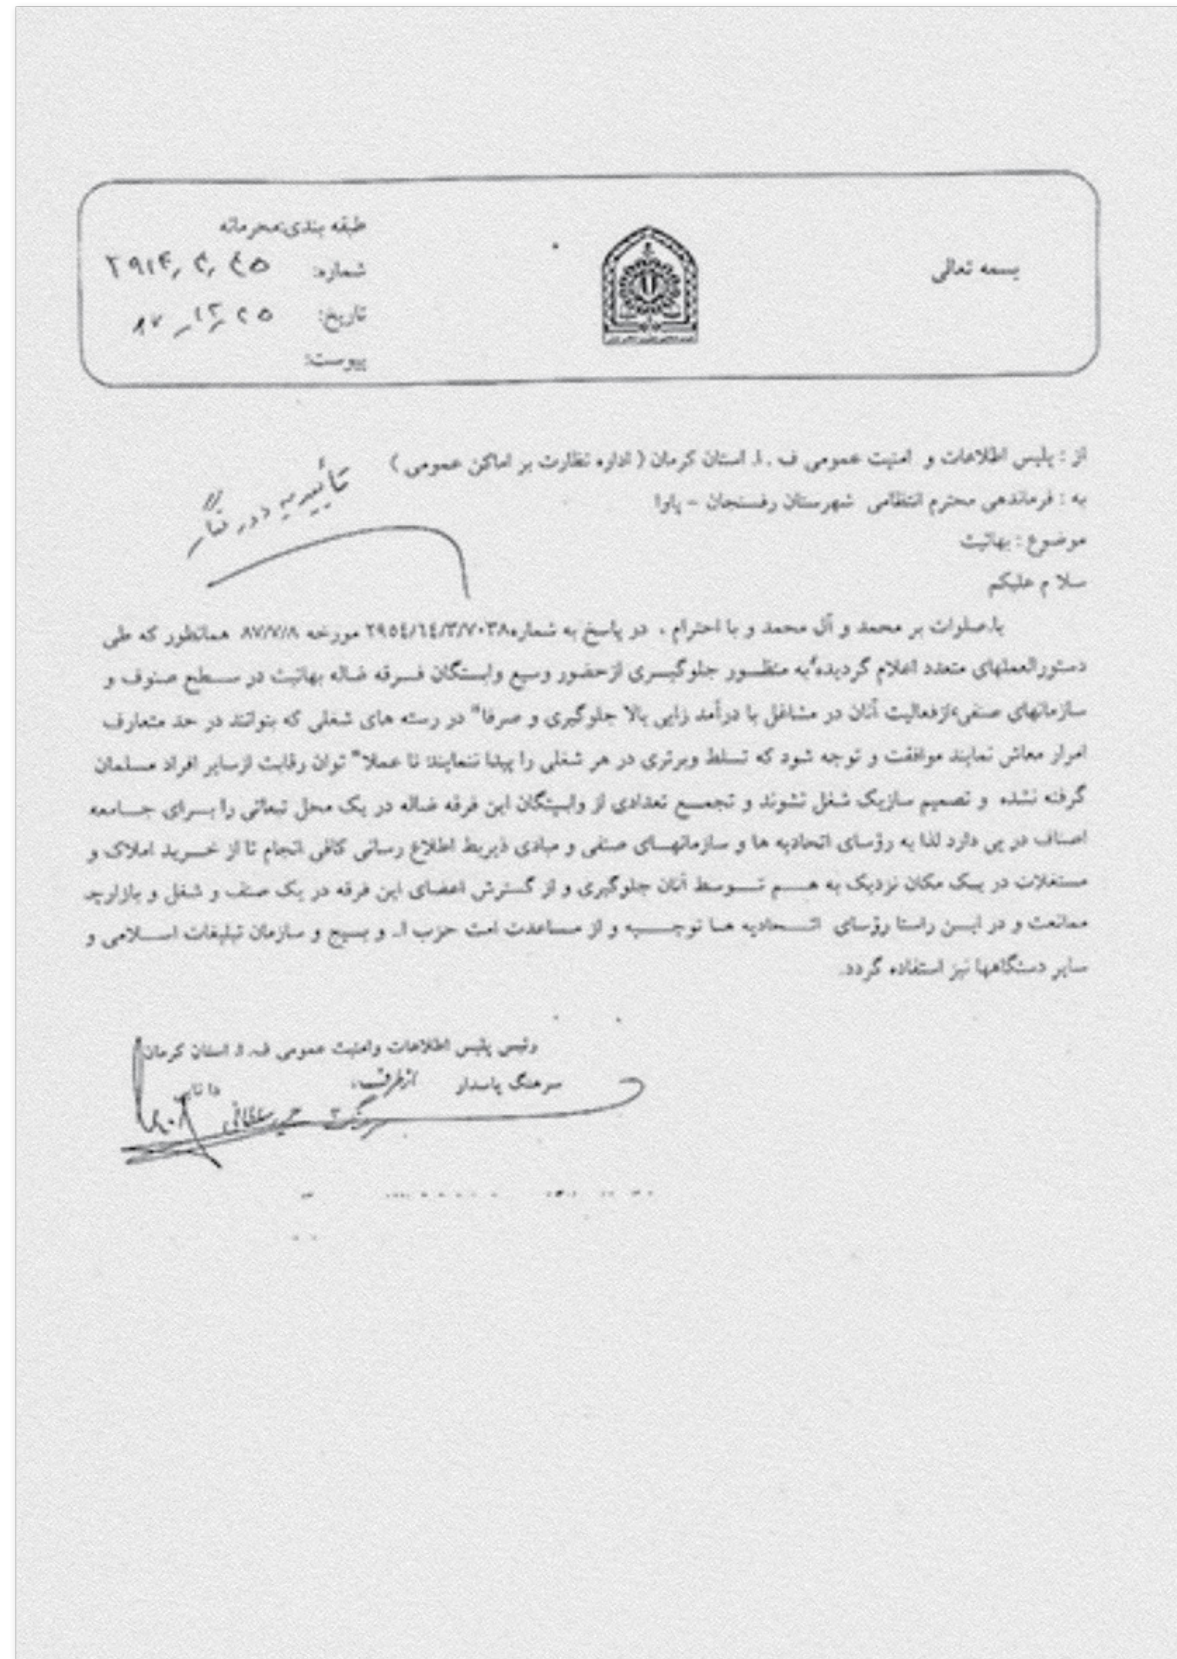 بسمه تعالی
طبقه بندی:محرمانه
شماره:
تاریخ: ۸۷/۱۲/۲۵
پیوست:
از : پلیس اطلاعات و امنیت عمومی ف . ا. استان کرمان ( اداره نظارت بر اماکن عمومی )
به : فرماندهی محترم انتظامی شهرستان رفسنجان – پاوا
موضوع : بهائیت
سلا م علیکم
با.صلوات بر محمد و آل محمد و با احترام . در پاسخ به شماره۲۹۵٤/٦٤/۳/۷۰۳۸ مورخه ۸۷/۷/۸ همانطور که طی
دستورالعملهای متعدد اعلام گردیده٬به منظـــور جلوگیـــری ازحضور وسیع وابستگان فــرقه ضاله بهائیت در ســطح صنوف و
سازمانهای صنفی٬ازفعالیت آنان در مشاغل با درآمد زایی بالا جلوگیری و صرفا" در رسته های شغلی که بتوانند در حد متعارف
امرار معاش نمایند موافقت و توجه شود که تسلط وبرتری در هر شغلی را پیدا ننمایند تا عملا" توان رقابت ازسایر افراد مسلمان
گرفته نشده و تصمیم سازیک شغل نشوند و تجمــع تعدادی از وابستگان این فرقه ضاله در یک محل تبعاتی را بــرای جــامعه
اصناف در پی دارد لذا به رؤسای اتحادیه ها و سازمانهــای صنفی و مبادی ذیربط اطلاع رسانی کافی انجام تا از خــرید املاک و
مستغلات در یــک مکان نزدیک به هــم تــوسط آنان جلوگیری و از گسترش اعضای این فرقه در یک صنف و شغل و بازارچه
ممانعت و در ایــن راستا رؤسای اتــحادیه هــا توجــیه و از مســاعدت امت حزب ا.. و بسیج و سازمان تبلیغات اســلامی و
سایر دستگاهها نیز استفاده گردد.
رئیس پلیس اطلاعات وامنیت عمومی ف. ا. استان کرمان
سرهنگ پاسدار از طرف